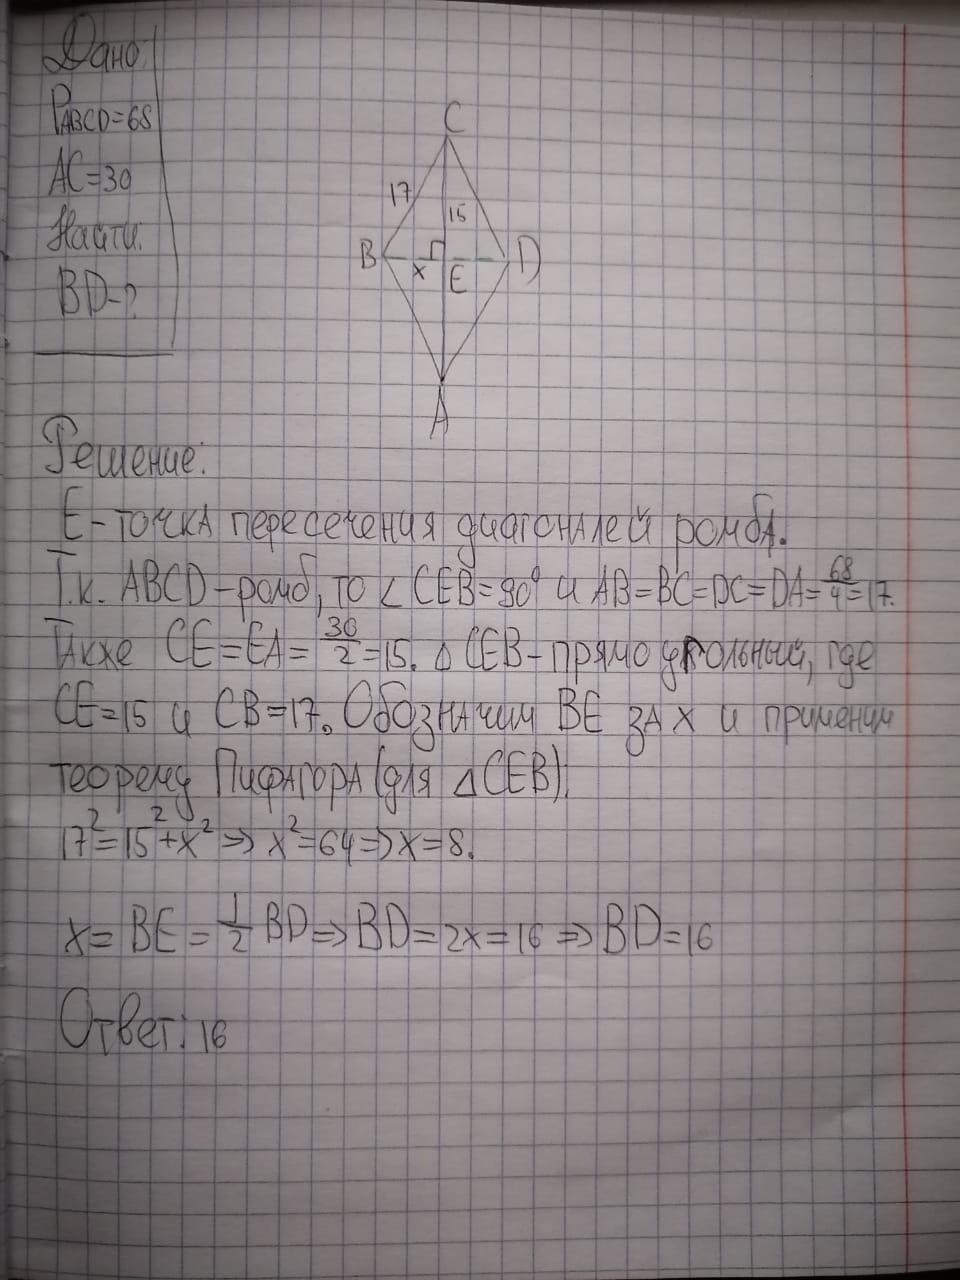 Дано:
P_ABCD=68
AC=30
Найти:
BD-?
C
17
15
B
x
E
D
A
Решение:
E-точка пересечения диагоналей ромба.
Т.к. ABCD-ромб, то ∠CEB=90° и AB=BC=DC=DA=68/4=17.
Также CE=EA=30/2=15. △CEB-прямоугольный, где
CE=15 и CB=17. Обозначим BE за x и применим
теорему Пифагора (для △CEB):
17²=15²+x² => x²=64=>x=8.
x=BE=1/2BD=>BD=2x=16=>BD=16
Ответ: 16